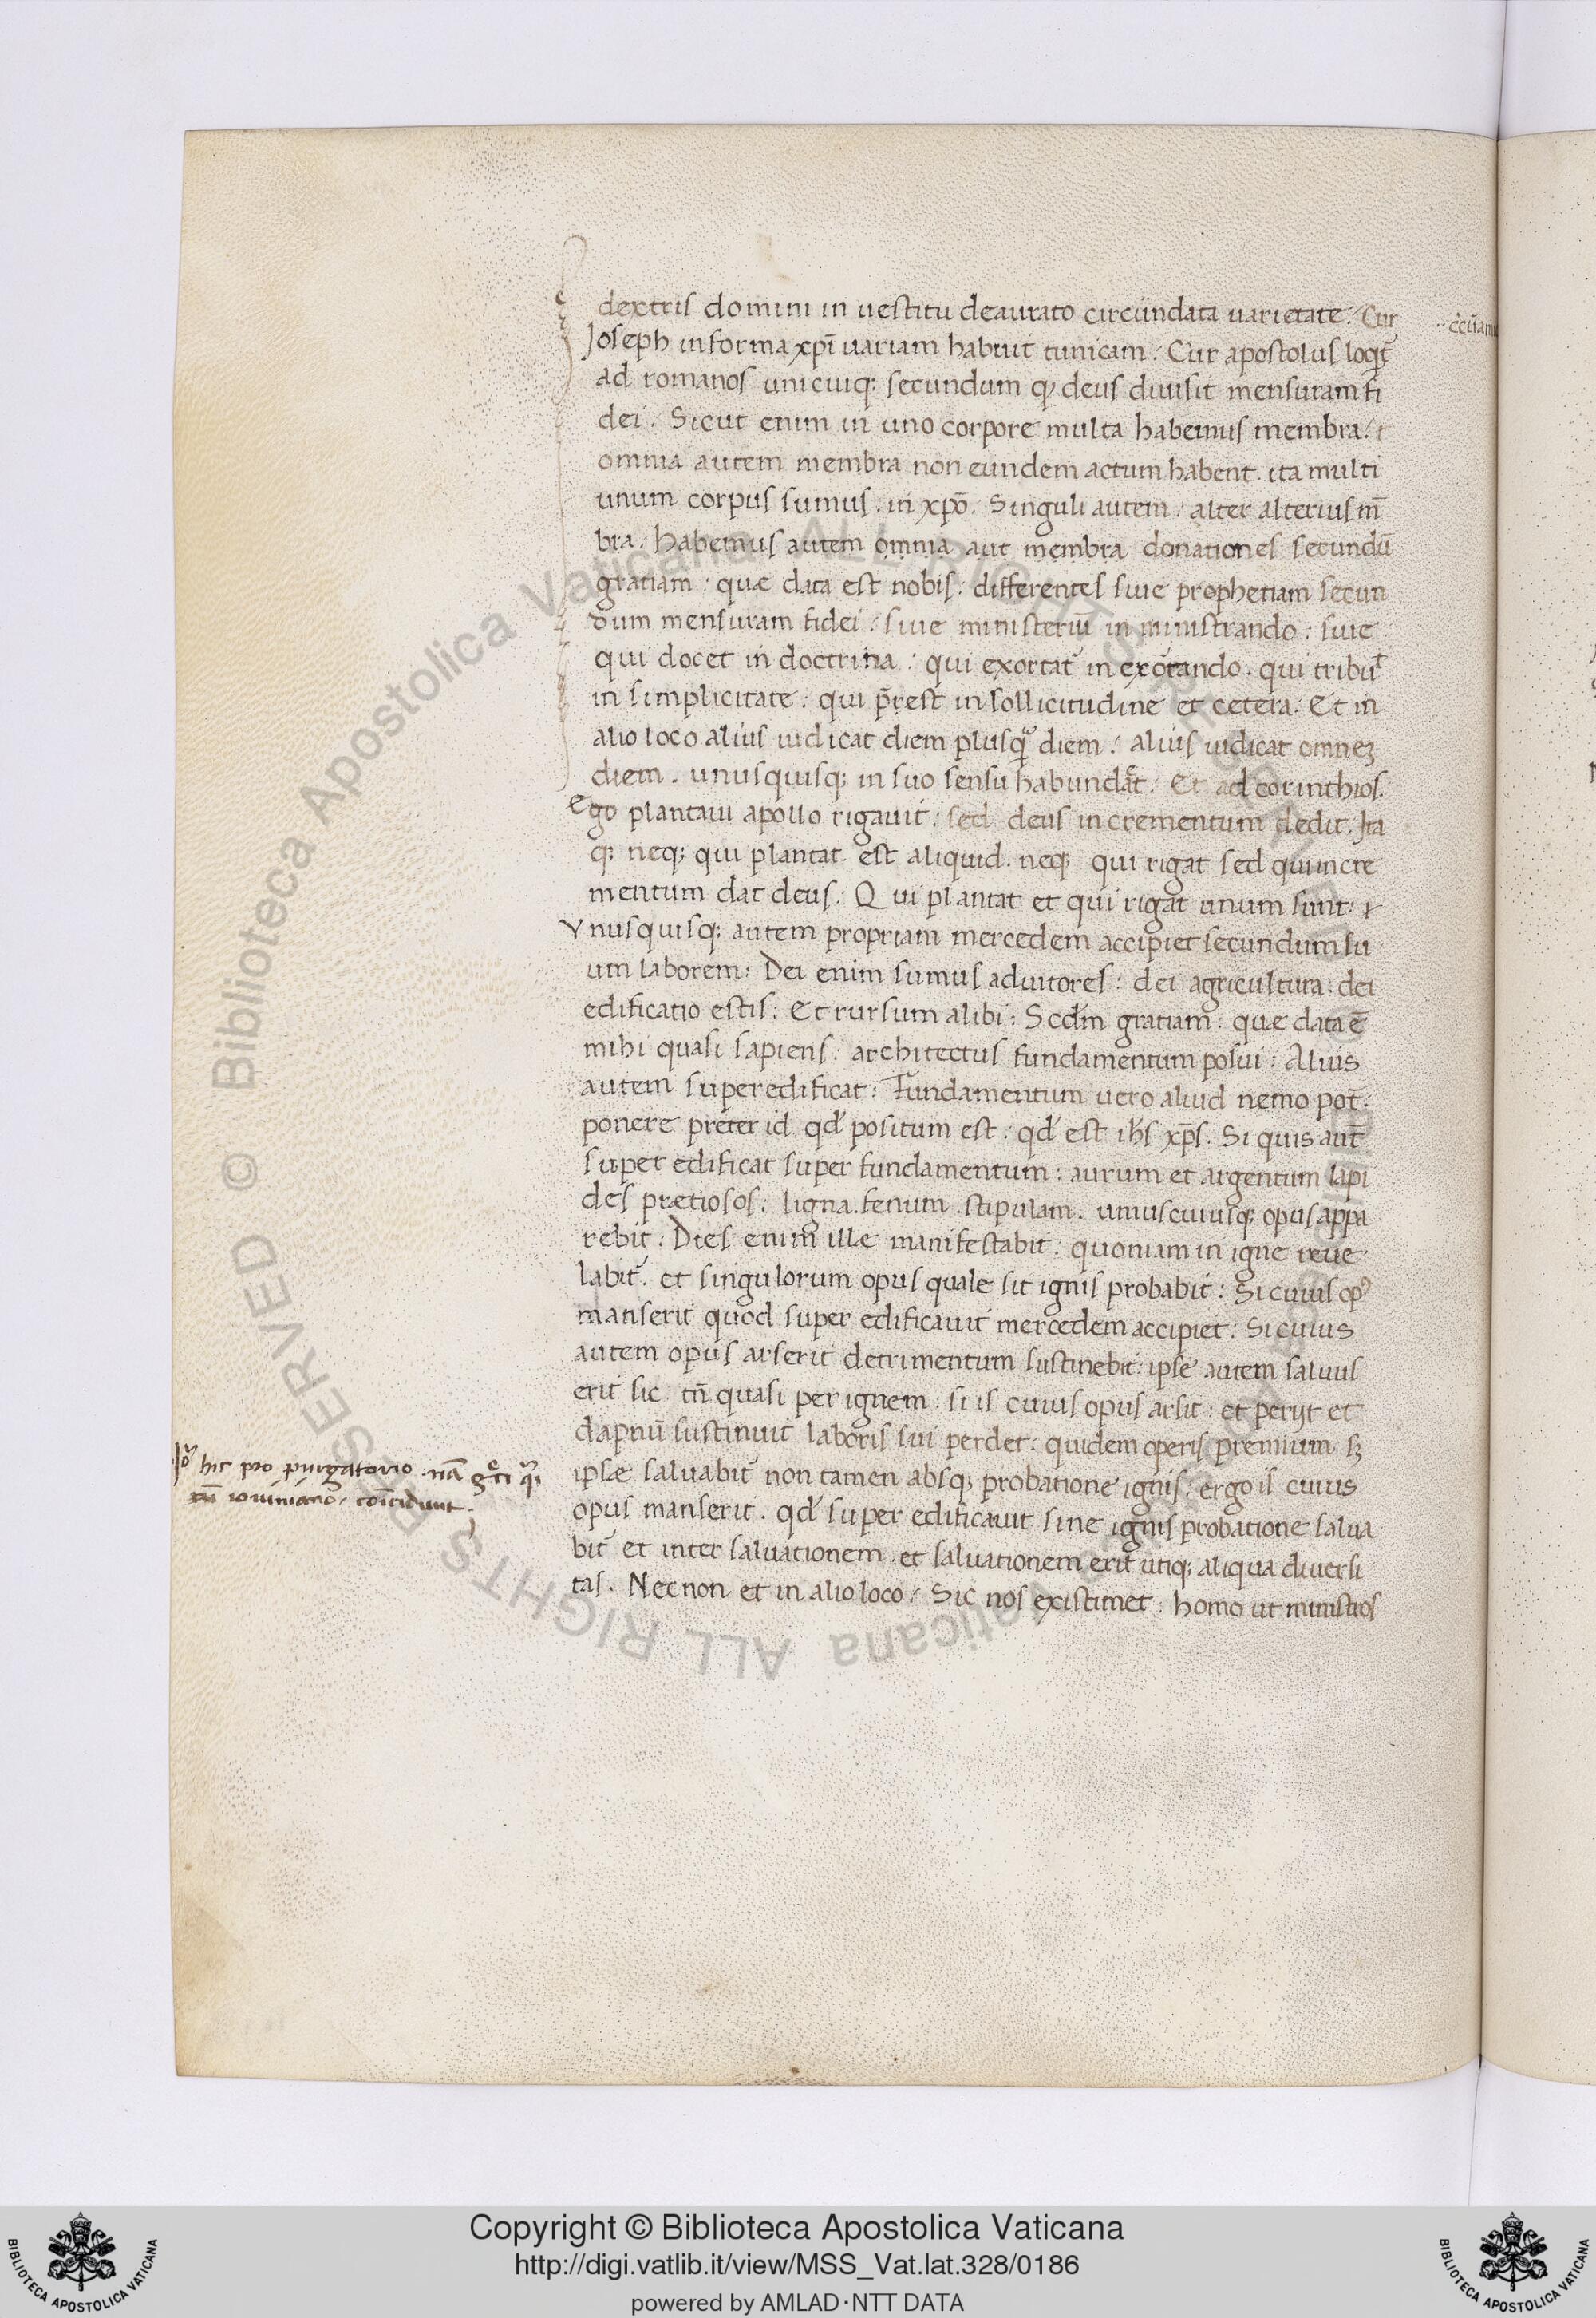 dextris domini in uestitu deaurato circūndata uarietate. Cur
Joseph in forma xp̄i uariam habuit tunicam. Cur apostolus loqt᷑
ad romanos unicuiq; secundum q deus diuisit mensuram fi
dei. Sicut enim in uno corpore multa habemus membra.
omnia autem membra non eundem actum habent. ita multi
unum corpus sumus. in xp̄o. Singuli autem. alter alterius m̄
bra. Habemus autem omnia aut membra donationes secundū
gratiam: quæ data est nobis: differentes siue prophetiam secun
dum mensuram fidei: siue ministeriū in ministrando: siue
qui docet in doctrina: qui exortat᷑ in exortando. qui tribut
in simplicitate: qui p̄rest in sollicitudine et cetera. Et in
alio loco alius iudicat diem plusq diem: alius iudicat omnez
diem. unusquisq; in suo sensu habundat. Et ad corinthios.
Ego plantaui apollo rigauit: sed deus incrementum dedit. Ita
q; neq; qui plantat est aliquid. neq; qui rigat sed qui incre
mentum dat deus. Qui plantat et qui rigat unum sunt:
Vnusquisq; autem propriam mercedem accipiet secundum su
um laborem: Dei enim sumus adiutores: dei agricultura: dei
edificatio estis: Et rursum alibi: Scdm gratiam: quæ data ē
mihi quasi sapiens: architectus fundamentum posui: Alius
autem superedificat: Fundamentum uero aliud nemo pot̄.
ponere preter id qd positum est: qd est ihs xp̄s. Si quis aut̄
super edificat super fundamentum: aurum et argentum lapi
des prætiosos: ligna. fenum. stipulam. uniuscuiusq; opus appa
rebit. Dies enim illæ manifestabit: quoniam in igne reue
labit᷑. et singulorum opus quale sit ignis probabit: Si cuius op᷒
manserit quod super edificauit mercedem accipiet: Si cuius
autem opus arserit detrimentum sustinebit: ipse autem saluus
erit sic tn̄ quasi per ignem: si is cuius opus arsit: et perijt et
dapnū sustinuit laboris sui perdet: quidem operis premium sz
ipsæ saluabit᷑ non tamen absq; probatione ignis: ergo is cuius
opus manserit. qd super edificauit sine ignis probatione salua
bit᷑ et inter saluationem et saluationem erit utiq; aliqua diuersi
tas. Nec non et in alio loco. Sic nos existimet: homo ut ministros
hic pro purgatorio. nā
iouiniano coīcidunt.
© Biblioteca Apostolica Vaticana ALL RIGHTS RESERVED
Copyright © Biblioteca Apostolica Vaticana
http://digi.vatlib.it/view/MSS_Vat.lat.328/0186
powered by AMLAD·NTT DATA
BIBLIOTECA APOSTOLICA VATICANA
BIBLIOTECA APOSTOLICA VATICANA